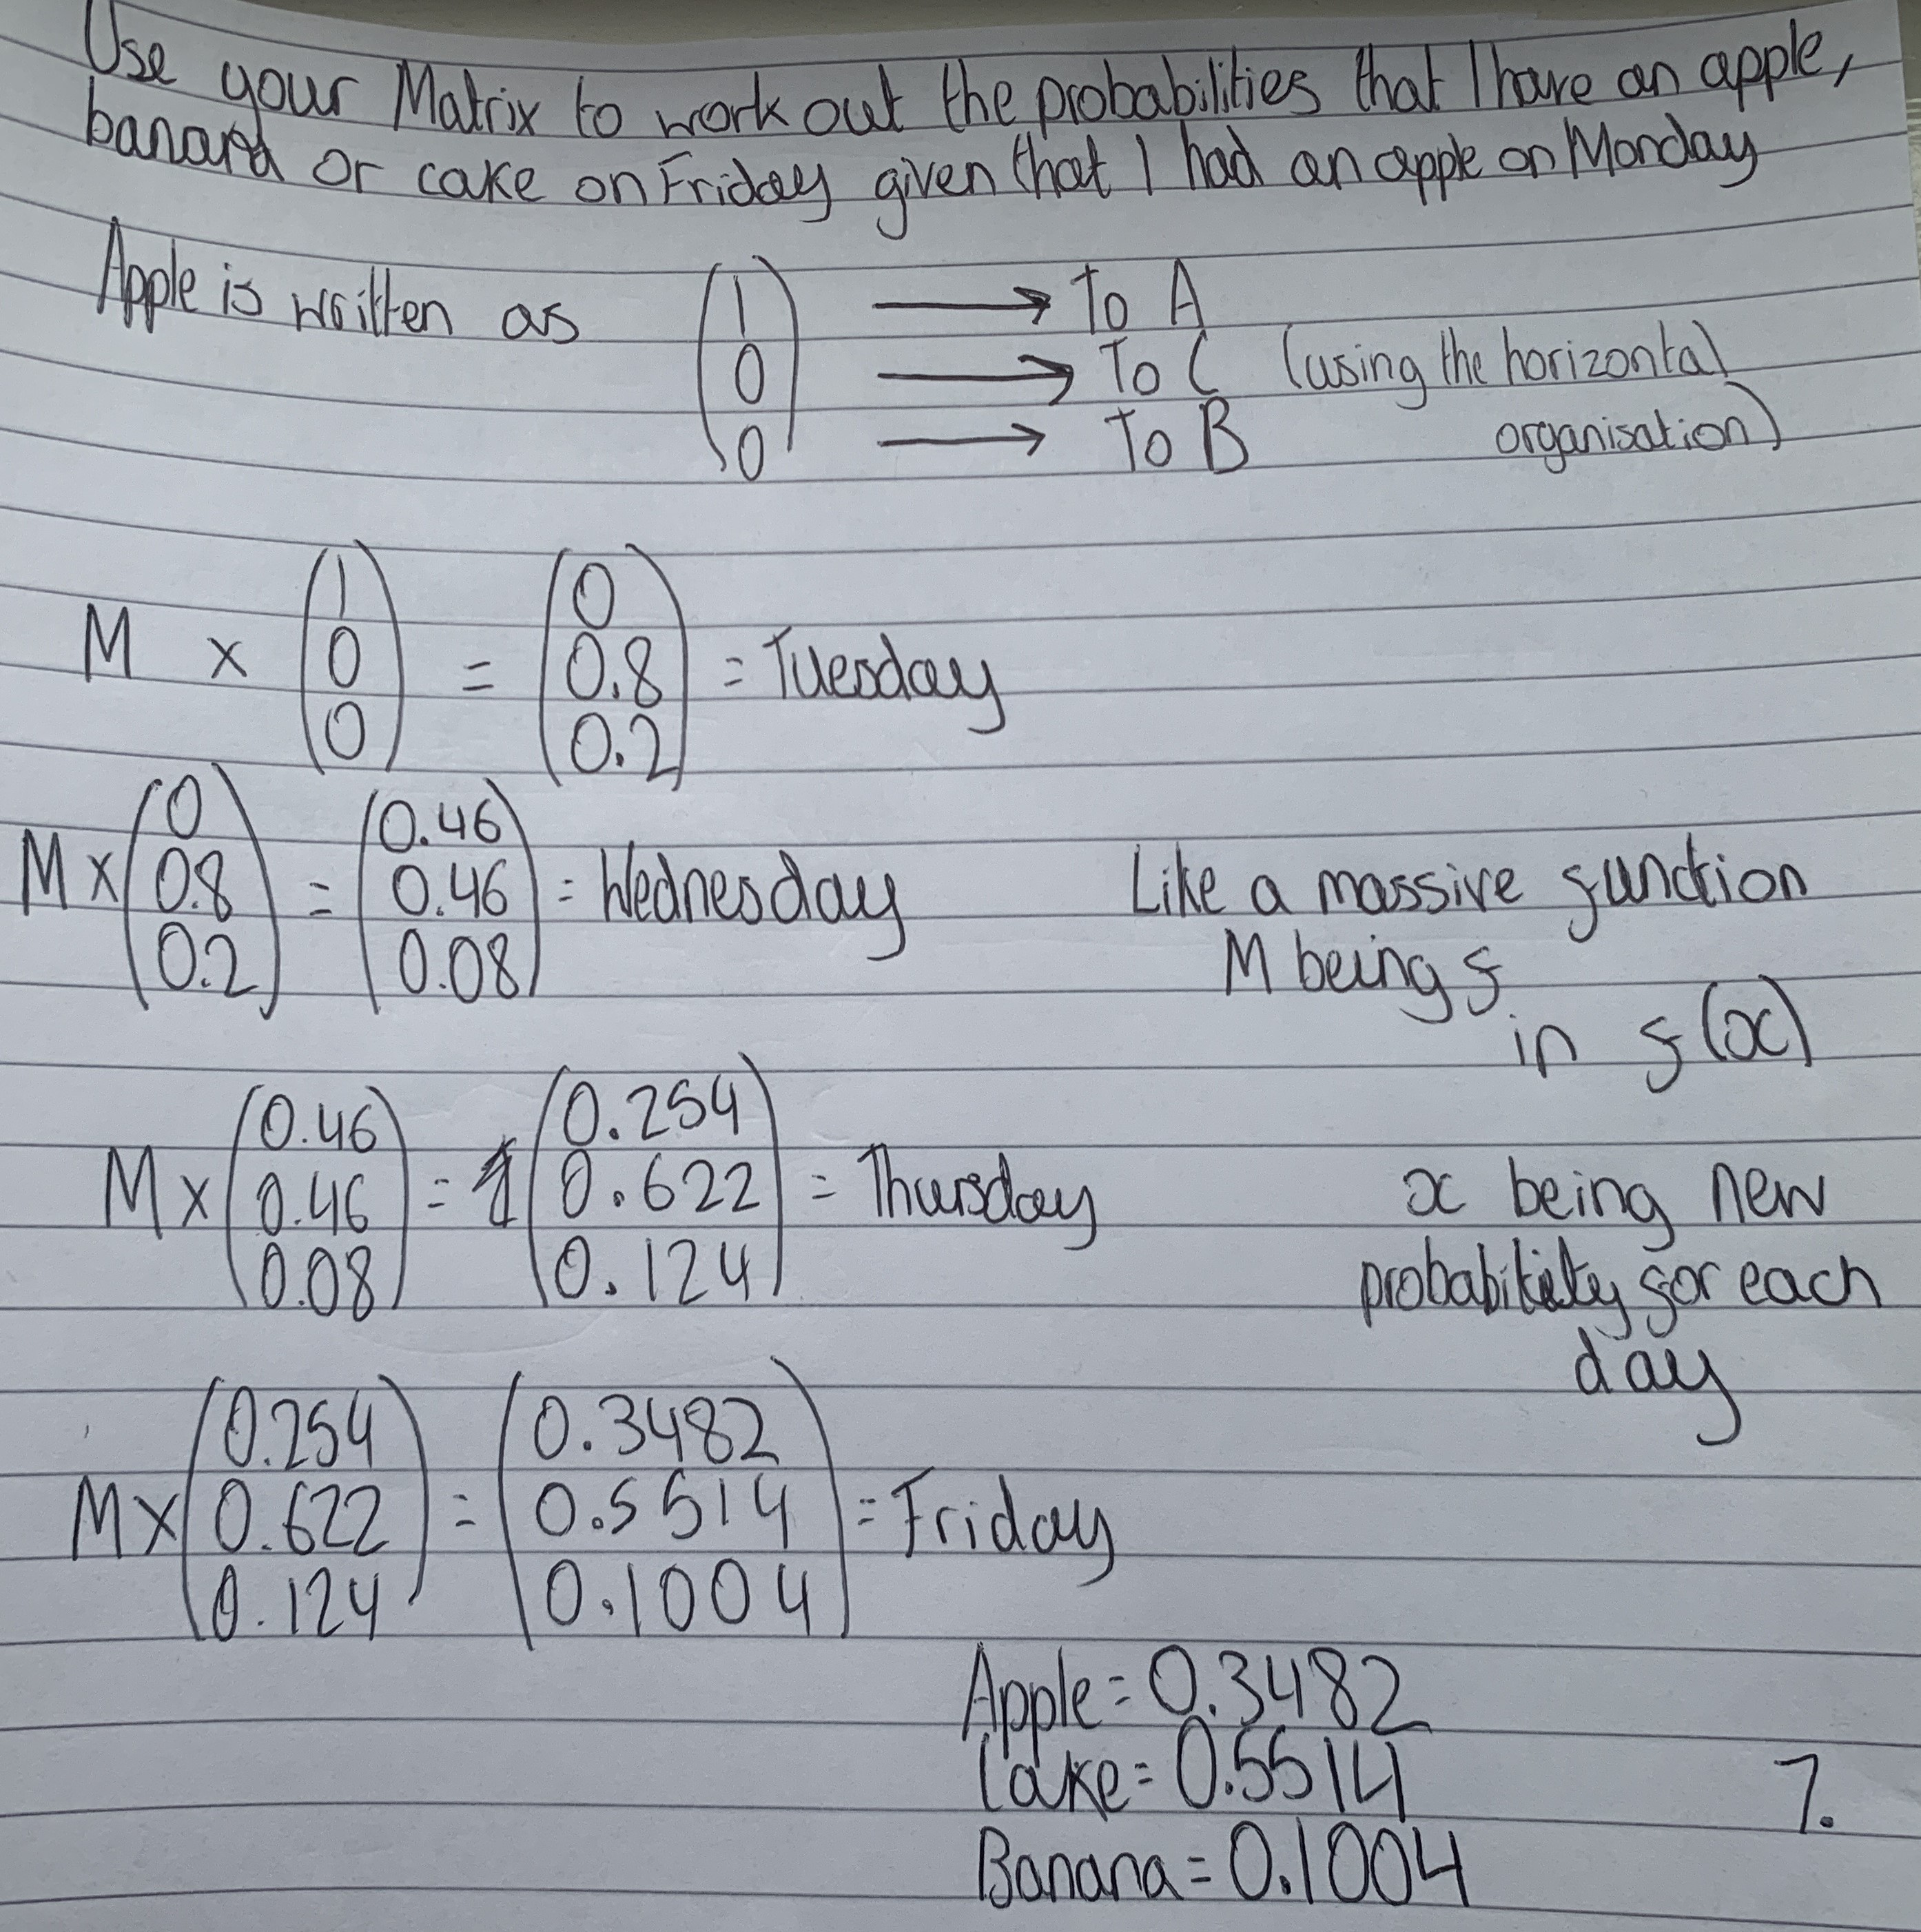 Use your Matrix to work out the probabilities that I have an apple,
banana or cake on Friday given that I had an apple on Monday
Apple is written as (1 0 0)
→ To A
→ To C (using the horizontal organisation)
→ To B
M × (1 0 0) = (0 0.8 0.2) = Tuesday
M × (0 0.8 0.2) = (0.46 0.46 0.08) = Wednesday
Like a massive function
M being f
in f(x)
M × (0.46 0.46 0.08) = (0.254 0.622 0.124) = Thursday
x being new
probability for each
day
M × (0.254 0.622 0.124) = (0.3482 0.5514 0.1004) = Friday
Apple = 0.3482
Cake = 0.5514
Banana = 0.1004
7.